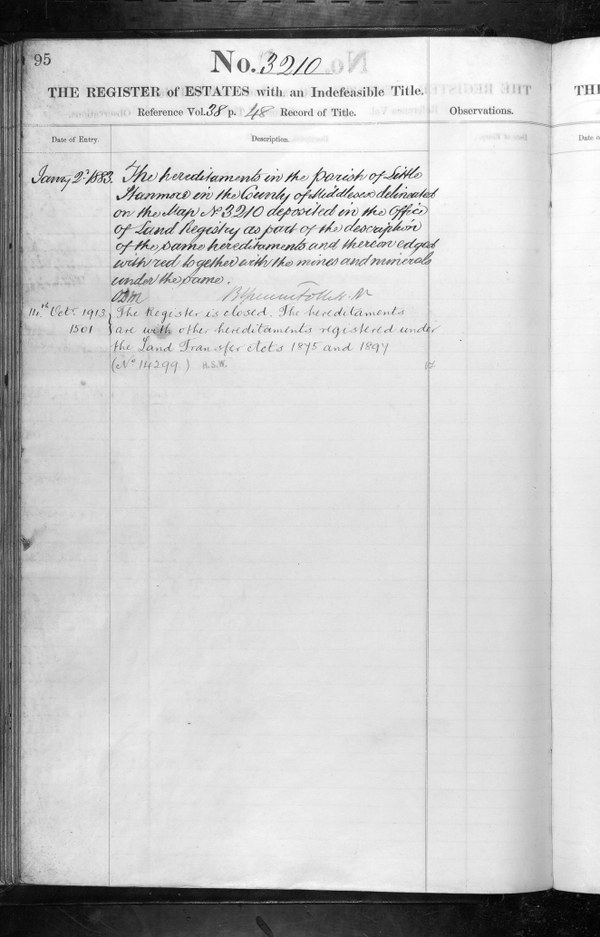 95
No. 3210
THE REGISTER of ESTATES with an Indefeasible Title.
Reference Vol. 38 p. 48 Record of Title.
Observations.
Date of Entry.
Description.
Jany 2d 1883. The hereditaments in the parish of Little
Stanmore in the County of Middlesex delineated
on the Map No 3210 deposited in the office
of Land Registry as part of the description
of the same hereditaments and thereon edged
with red together with the mines and minerals
under the same.
14th Octr 1913 The Register is closed. The hereditaments
1501 are with other hereditaments registered under
the Land Transfer Acts 1875 and 1897
(No 14299.) H.S.W.
THE
Date o